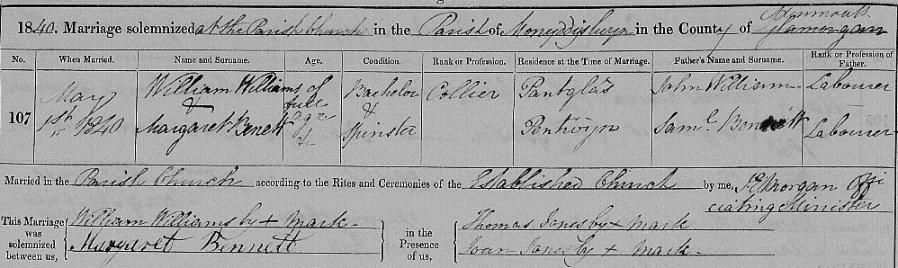 1840. Marriage solemnized at the Parish Church in the Parish of Monyddyslwyn in the County of Monmouth Glamorgan
No. When Married. Name and Surname. Age. Condition. Rank or Profession. Residence at the Time of Marriage. Father's Name and Surname. Rank or Profession of Father.
107 May 1st 1840 William Williams of full age Bachelor Collier Pantglas John William Labourer
& &
Margaret Benett Spinster Pentwyn Saml. Bennett Labourer
Married in the Parish Church according to the Rites and Ceremonies of the Established Church by me, Morgan Offi
ciating Minister
This Marriage was solemnized between us, William Williams by + mark - in the Presence of us, Thomas Jones by + mark
Margaret Bennett Joan Jones by + mark -